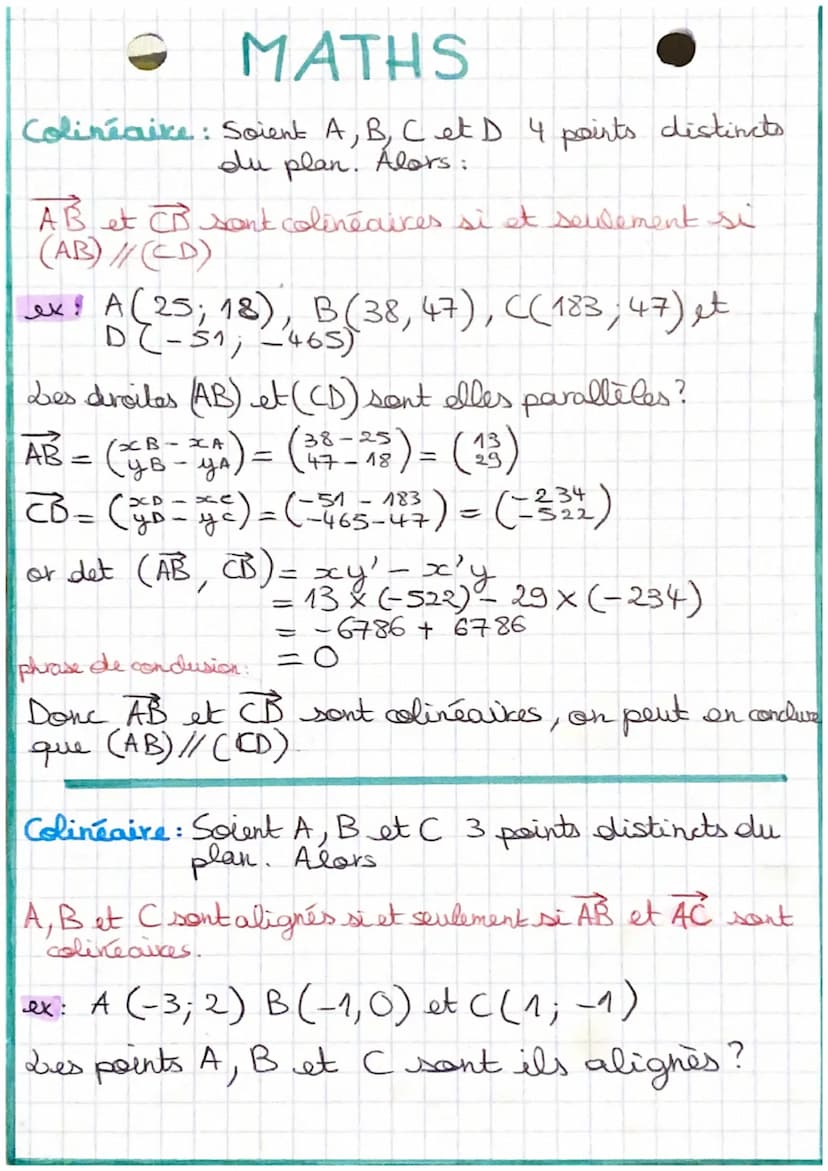 MATHS
Colinéaire : Soient A, B, C et D 4 points distincts
du plan. Alors :
AB et CD sont colinéaires si et seulement si
(AB) // (CD)
ex : A(25; 18), B(38, 47), C(183; 47) et
D(-51; -465)
Les droites (AB) et (CD) sont elles parallèles ?
AB = (xB - xA / yB - yA) = (38 - 25 / 47 - 18) = (13 / 29)
CD = (xD - xC / yD - yC) = (-51 - 183 / -465 - 47) = (-234 / -522)
or det (AB, CD) = xy' - x'y
= 13 × (-522) - 29 × (-234)
= -6786 + 6786
= 0
phrase de conclusion :
Donc AB et CD sont colinéaires, on peut en conclure
que (AB) // (CD)
Colinéaire : Soient A, B et C 3 points distincts du
plan. Alors
A, B et C sont alignés si et seulement si AB et AC sont
colinéaires.
ex : A (-3; 2) B(-1, 0) et C(1; -1)
Les points A, B et C sont ils alignès ?